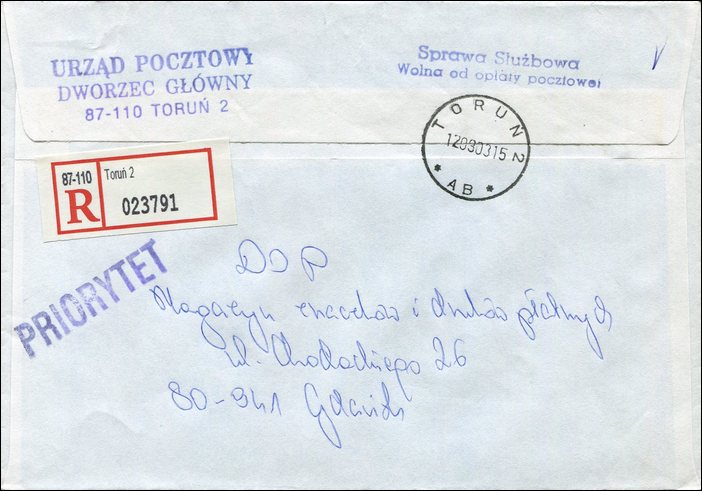 URZĄD POCZTOWY
DWORZEC GŁÓWNY
87-110 TORUŃ 2
Sprawa Służbowa
Wolna od opłaty pocztowej
TORUŃ 2
12030315
* AB *
87-110 Toruń 2
R 023791
PRIORYTET
DOP
Magazyn znaczków i druków płatnych
ul.
26
80-941 Gdańsk